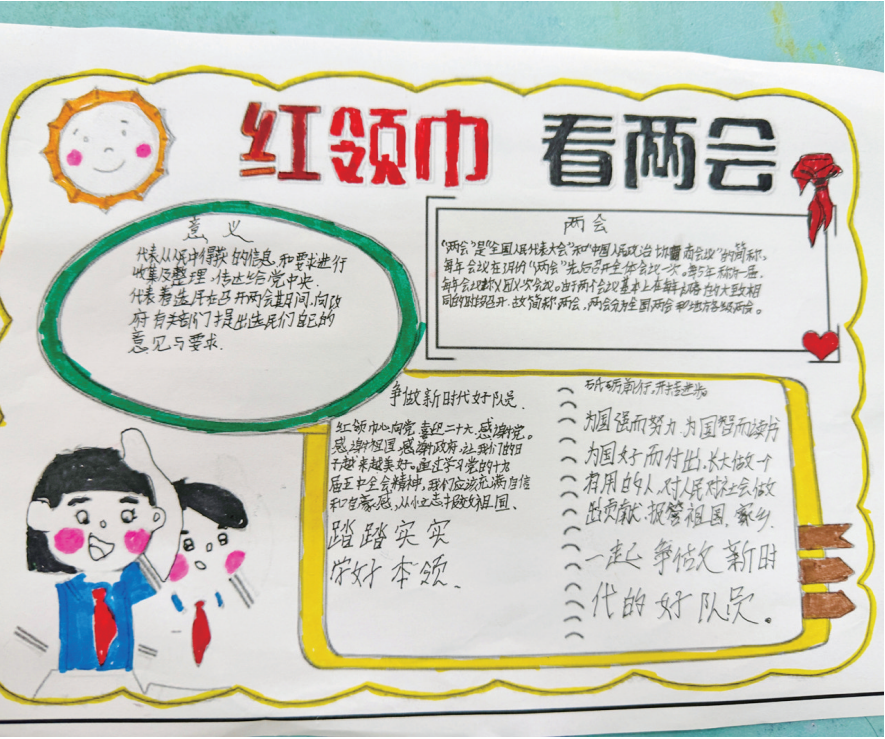 红领巾 看两会
意义
代表从人民中得到的信息和要求进行
收集及整理,传达给党中央.
代表着选民在召开两会期间,向政
府有关部门提出选民们自己的
意见与要求.
两会
“两会”是“全国人民代表大会”和“中国人民政治协商会议”的简称。
每年会议召开
每年会议称X届X次会议。由于两个会议基本上在每年
同的时段召开,故简称两会,两会分为全国两会和地方各级两会。
争做新时代好队员.
红领巾心向党,喜迎二十大,感谢党。
感谢祖国,感谢政府,让我们的日
子越来越美好。通过学习党的十九
届五中全会精神,我们应该充满自信
和自豪感,从小立志报效祖国.
踏踏实实
学好本领.
为国强而努力.为国智而读书
为国好而付出.长大做一个
有用的人,对人民对社会做
出贡献.报答祖国,家乡.
一起争做新时
代的好队员。